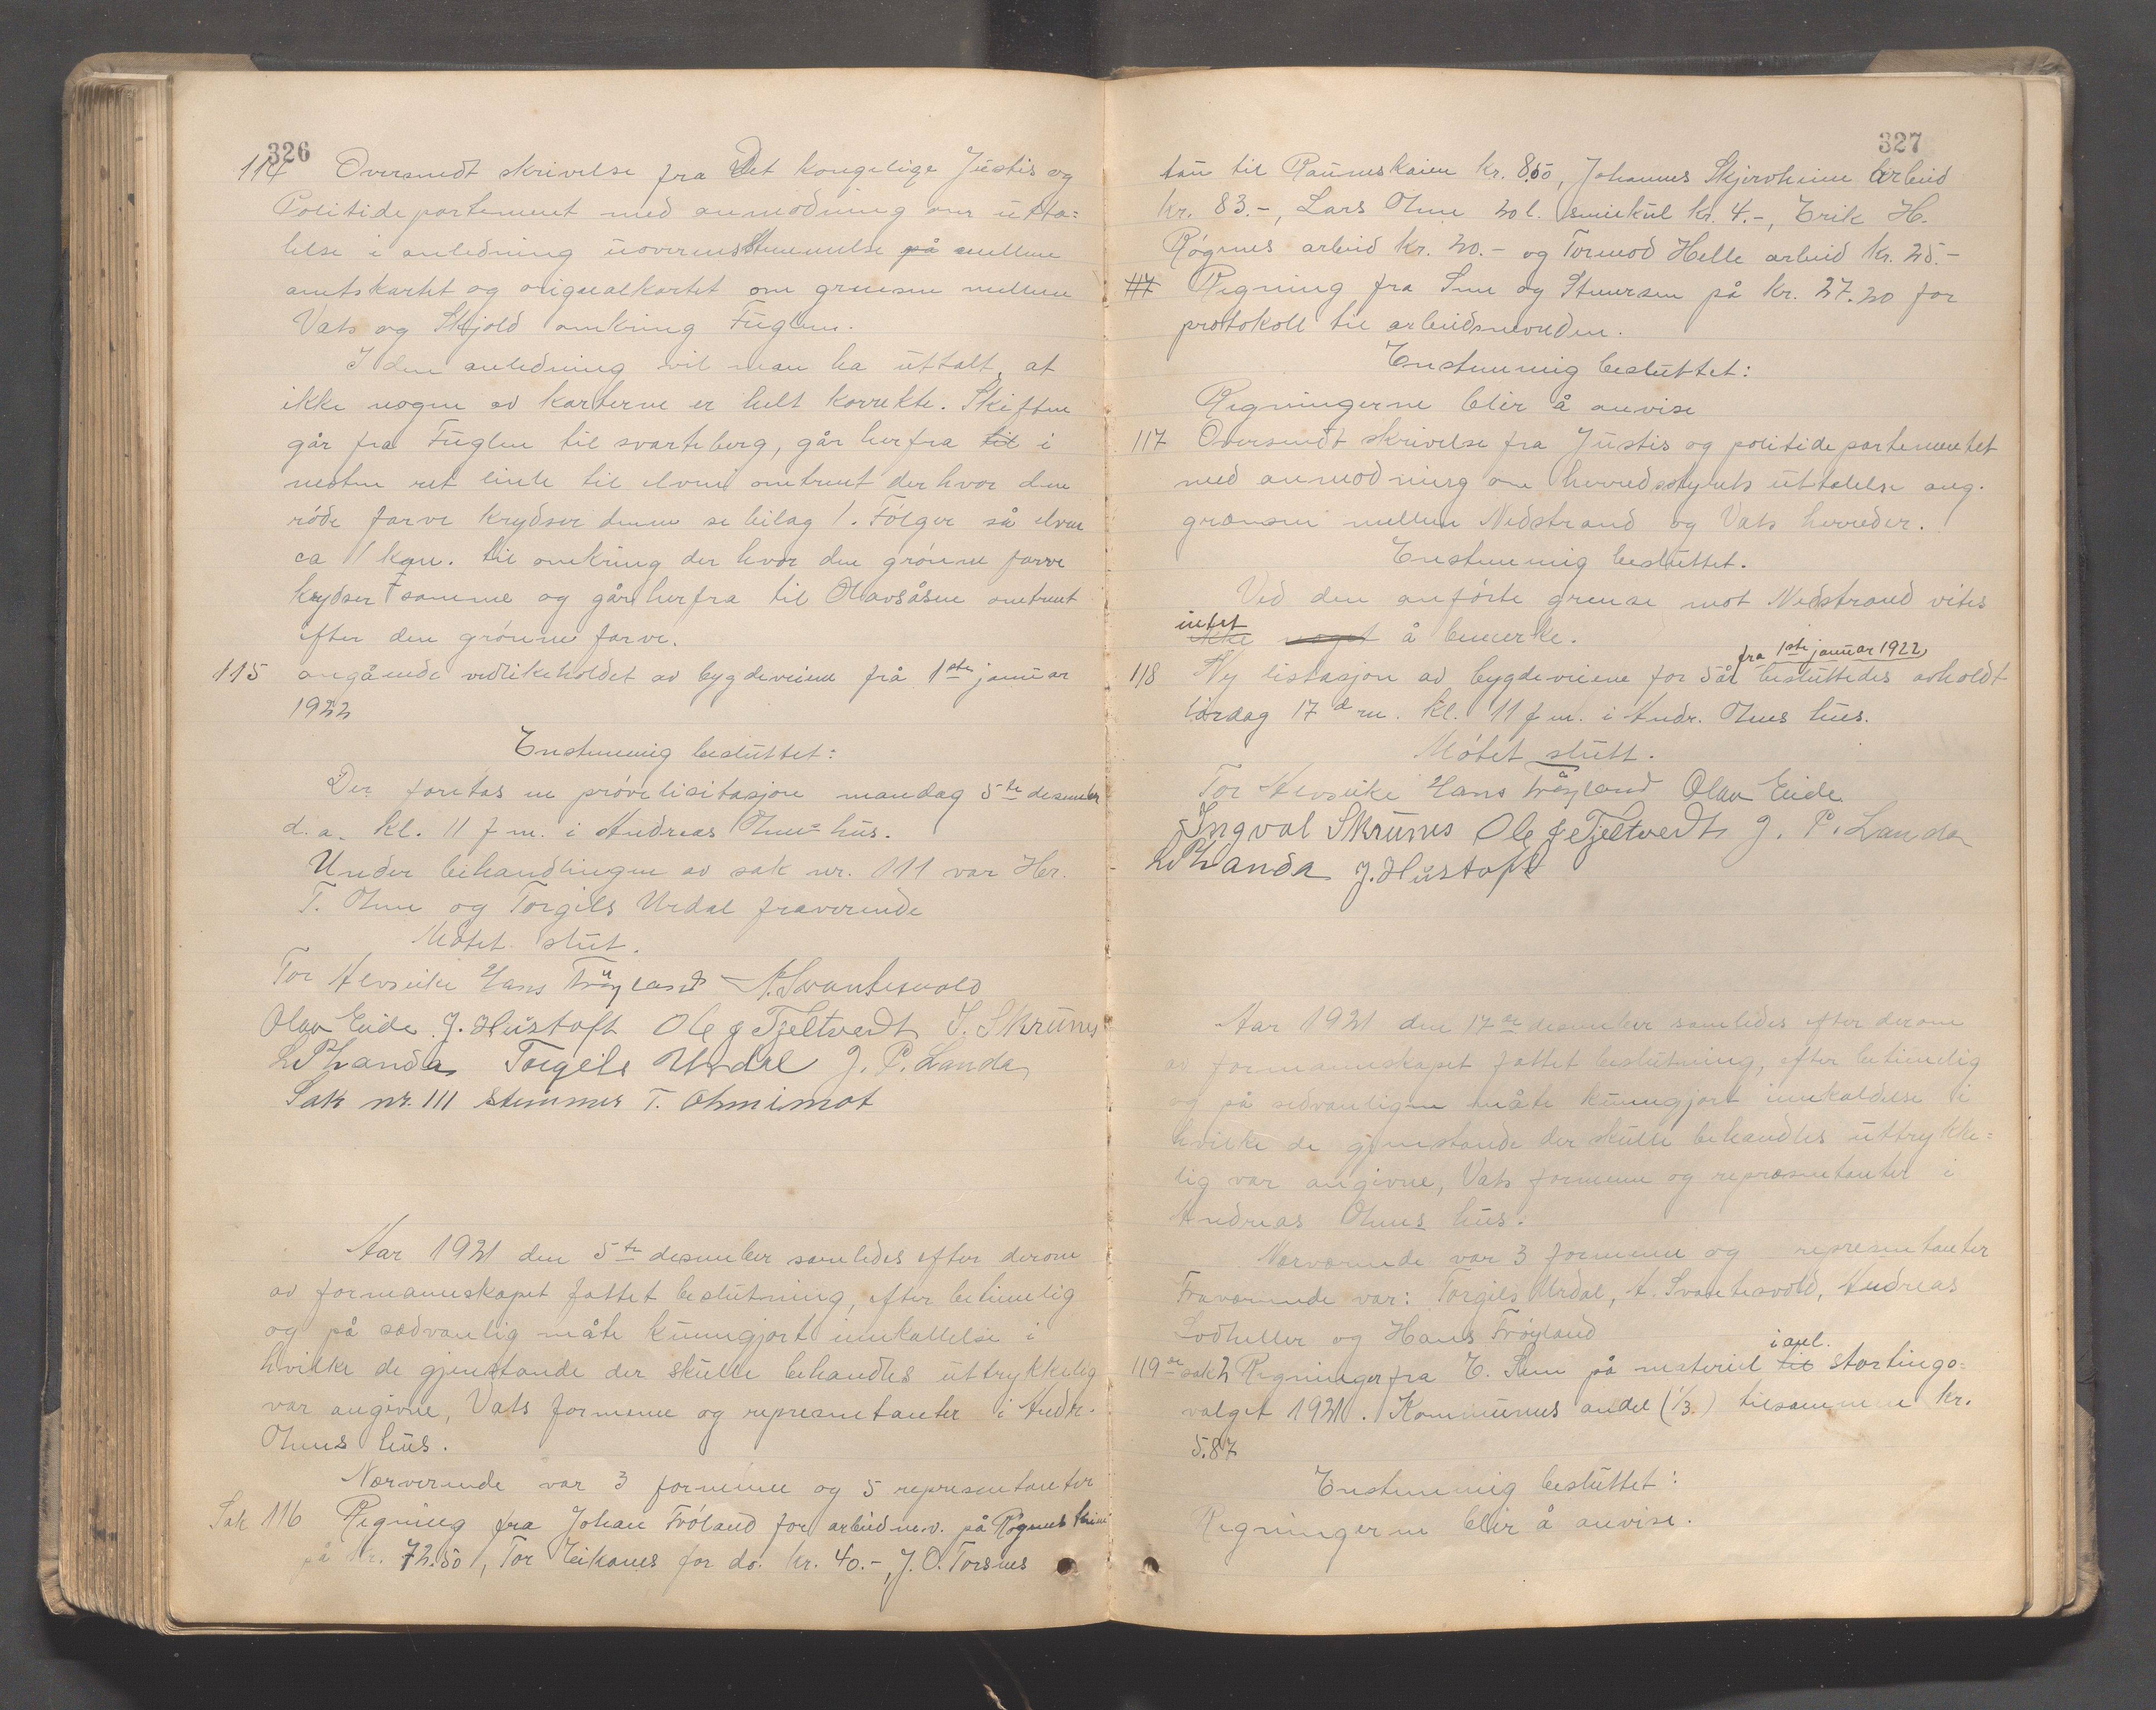 326
114 Oversendt skrivelse fra Det kongelige Justis og
Politidepartement med anmodning om utta=
lelse i anledning uoverensstemmelse på mellem
amtskartet og originalkartet om grensen mellem
Vats og Skjold omkring Fuglen.
I den anledning vil man ha uttalt, at
ikke nogen av karterne er helt korrekte. Skiftem
går fra Fuglen til svarteberg, går herfra til i
nesten ret linle til elven omtrent der hvor den
røde farve krydser denne se bilag 1. Følger så elven
ca 1 kgm. til omkring der hvor den grønne farve
krydser samme og går herfra til Olavsåsen omtrent
efter den grønne farve.
115 angående vedlikeholdet av bygdeveiene frå 1ste januar
1922
Enstemmig besluttet:
Der foretas en prøvelisitasjon mandag 5te desember
d.a. kl. 11 f m. i Andreas Ohms hus.
Under behandlingen av sak nr. 111 var Hr.
T. Ohm og Torgils Urdal fraverende
Møtet slut.
Tor Alvseike Hans Frøyland A. Svantesvold
Olav Eide J. Hustoft Ole J Tjeltvedt I. Skrunes
L P Landa Torgils Urdal J. P. Landa
Sak nr. 111 stemmer T. Ohm imot
Aar 1921 den 5te desember samledes efter derom
av formannskapet fattet beslutning, efter betimelig
og på sædvanlig måte kunngjort innkallelse i
hvilke de gjenstande der skulle behandles uttrykkelig
var angivne, Vats formenn og representanter i Andr.
Ohms hus.
Nærverende var 3 formenn og 5 representanter
Sak 116 Regning fra Johan Frøland for arbeid m.v. på Røgnes kaien
på kr. 72.50, Tor Eikanes for do. kr. 40.-, J. O. Torsnes
327
tau til Raunneskaien kr. 8.50, Johannes Skjervheim arbeid
kr. 83.-, Lars Ohm 20 l. smiekul kr. 4.-, Erik H.
Røgnes arbeid kr. 20.- og Tormod Helle arbeid kr. 25.-
117 Regning fra Sem og Stenersen på kr. 27.20 for
protokoll til arbeidsnevnden.
Enstemmig besluttet:
Regningerne blir å anvise
117 Oversendt skrivelse fra Justis og politidepartementet
med anmodning om herredsstyrets uttalelse ang.
grænsen mellem Nedstrand og Vats herreder.
Enstemmig besluttet.
Ved den anførte grense mot Nedstrand vites
intet
ikke noget å bemerke.
fra 1ste januar 1922
118 Ny listasjon av bygdeveiene for 5 år besluttedes avholdt
lørdag 17 d m. kl. 11 f m. i Andr. Ohms hus.
Møtet slutt.
Tor Alvseike Hans Frøyland Olav Eide
Ingval Skrunes Ole J Tjeltvedt J. P. Landa
L P Landa J. Hustoft
Aar 1921 den 17de desember samledes efter derom
av formannskapet fattet beslutning, efter betimelig
og på sedvanligen måte kunngjort innkaldelse i
hvilke de gjenstande der skulle behandles uttrykke=
lig var angivne, Vats formenn og representanter i
Andreas Ohms hus.
Nærværende var 3 formenn og representanter
Fraværende var: Torgils Urdal, A. Svantesvold, Andreas
Lodheller og Hans Frøyland
i anl.
119 sak 2 Regninger fra E. Sem på materiel til stortings=
valget 1921. Kommunens andel (1/3) tilsammen kr.
5.87
Enstemmig besluttet:
Regningerne blir å anvise.